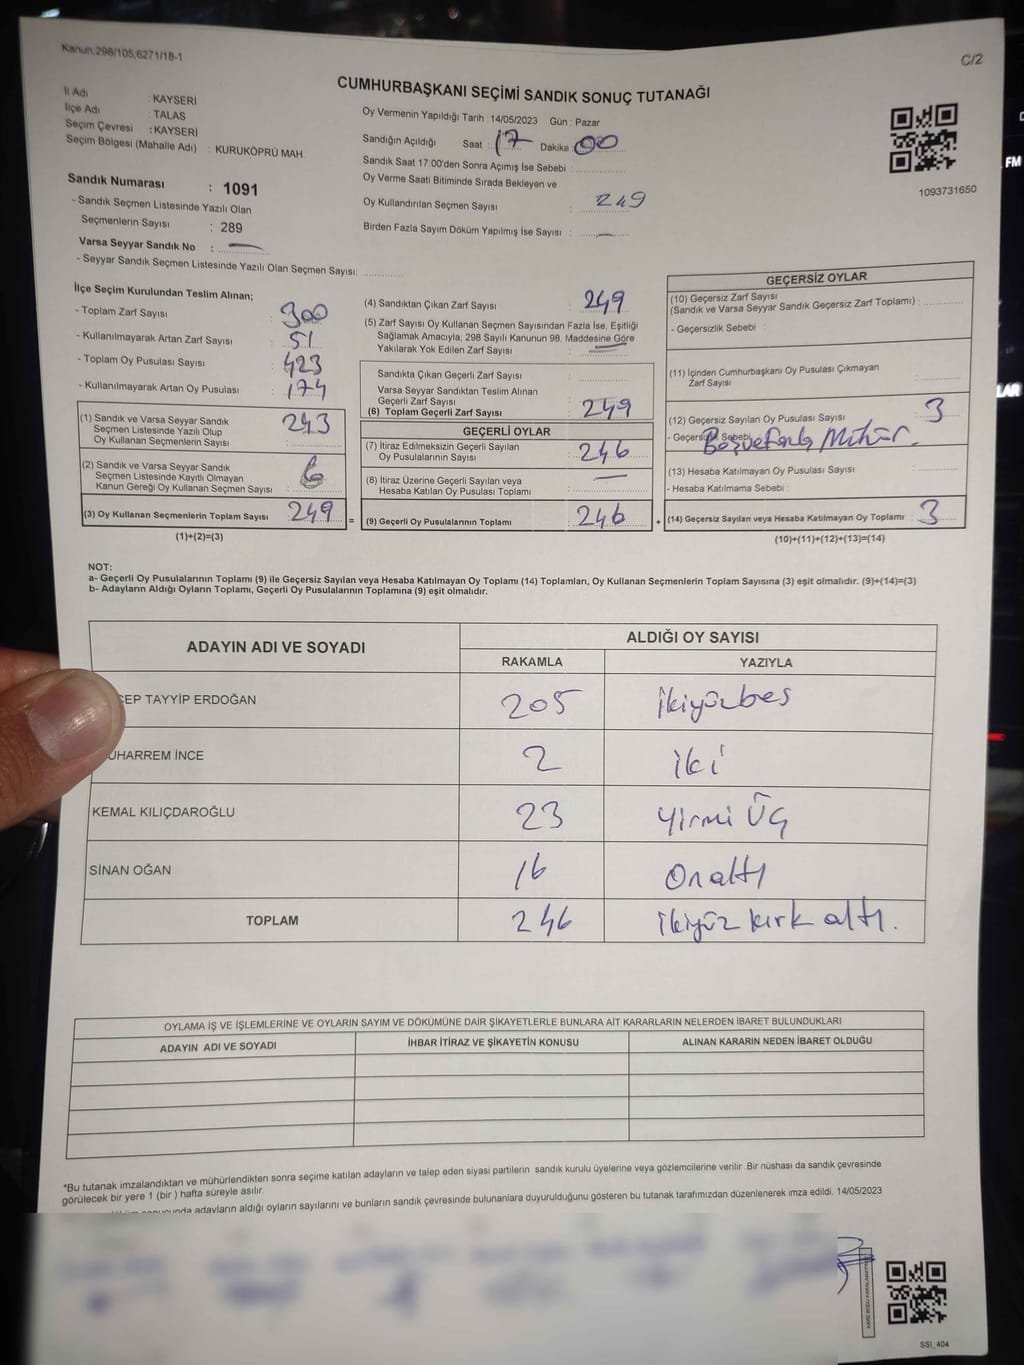 Kanun.298/105,6271/18-1
C/2
CUMHURBAŞKANI SEÇİMİ SANDIK SONUÇ TUTANAĞI
İl Adı : KAYSERİ
İlçe Adı : TALAS
Seçim Çevresi : KAYSERİ
Seçim Bölgesi (Mahalle Adı) : KURUKÖPRÜ MAH
Sandık Numarası : 1091
- Sandık Seçmen Listesinde Yazılı Olan
Seçmenlerin Sayısı : 289
Varsa Seyyar Sandık No :
- Seyyar Sandık Seçmen Listesinde Yazılı Olan Seçmen Sayısı:
Oy Vermenin Yapıldığı Tarih : 14/05/2023 Gün : Pazar
Sandığın Açıldığı Saat : 17 Dakika : 00
Sandık Saat 17:00'den Sonra Açımış İse Sebebi :
Oy Verme Saati Bitiminde Sırada Bekleyen ve
Oy Kullandırılan Seçmen Sayısı : 249
Birden Fazla Sayım Döküm Yapılmış İse Sayısı : —
1093731650
İlçe Seçim Kurulundan Teslim Alınan;
- Toplam Zarf Sayısı : 300
- Kullanılmayarak Artan Zarf Sayısı : 51
- Toplam Oy Pusulası Sayısı : 423
- Kullanılmayarak Artan Oy Pusulası : 174
(1) Sandık ve Varsa Seyyar Sandık
Seçmen Listesinde Yazılı Olup
Oy Kullanan Seçmenlerin Sayısı : 243
(2) Sandık ve Varsa Seyyar Sandık
Seçmen Listesinde Kayıtlı Olmayan
Kanun Gereği Oy Kullanan Seçmen Sayısı : 6
(3) Oy Kullanan Seçmenlerin Toplam Sayısı : 249 =
(1)+(2)=(3)
(4) Sandıktan Çıkan Zarf Sayısı : 249
(5) Zarf Sayısı Oy Kullanan Seçmen Sayısından Fazla İse, Eşitliği
Sağlamak Amacıyla, 298 Sayılı Kanunun 98. Maddesine Göre
Yakılarak Yok Edilen Zarf Sayısı : —
Sandıkta Çıkan Geçerli Zarf Sayısı :
Varsa Seyyar Sandıktan Teslim Alınan
Geçerli Zarf Sayısı
(6) Toplam Geçerli Zarf Sayısı : 249
GEÇERLİ OYLAR
(7) İtiraz Edilmeksizin Geçerli Sayılan
Oy Pusulalarının Sayısı : 246
(8) İtiraz Üzerine Geçerli Sayılan veya
Hesaba Katılan Oy Pusulası Toplamı : —
(9) Geçerli Oy Pusulalarının Toplamı : 246 +
GEÇERSİZ OYLAR
(10) Geçersiz Zarf Sayısı
(Sandık ve Varsa Seyyar Sandık Geçersiz Zarf Toplamı) :
- Geçersizlik Sebebi :
(11) İçinden Cumhurbaşkanı Oy Pusulası Çıkmayan
Zarf Sayısı :
(12) Geçersiz Sayılan Oy Pusulası Sayısı : 3
- Geçersizlik Sebebi Mühür.
(13) Hesaba Katılmayan Oy Pusulası Sayısı :
- Hesaba Katılmama Sebebi :
(14) Geçersiz Sayılan veya Hesaba Katılmayan Oy Toplamı : 3
(10)+(11)+(12)+(13)=(14)
NOT:
a- Geçerli Oy Pusulalarının Toplamı (9) ile Geçersiz Sayılan veya Hesaba Katılmayan Oy Toplamı (14) Toplamları, Oy Kullanan Seçmenlerin Toplam Sayısına (3) eşit olmalıdır. (9)+(14)=(3)
b- Adayların Aldığı Oyların Toplamı, Geçerli Oy Pusulalarının Toplamına (9) eşit olmalıdır.
ADAYIN ADI VE SOYADI ALDIĞI OY SAYISI
RAKAMLA YAZIYLA
CEP TAYYİP ERDOĞAN 205 ikiyüzbes
UHARREM İNCE 2 iki
KEMAL KILIÇDAROĞLU 23 yirmi Üç
SİNAN OĞAN 16 Onaltı
TOPLAM 246 ikiyüz kırk altı.
OYLAMA İŞ VE İŞLEMLERİNE VE OYLARIN SAYIM VE DÖKÜMÜNE DAİR ŞİKAYETLERLE BUNLARA AİT KARARLARIN NELERDEN İBARET BULUNDUKLARI
ADAYIN ADI VE SOYADI İHBAR İTİRAZ VE ŞİKAYETİN KONUSU ALINAN KARARIN NEDEN İBARET OLDUĞU
*Bu tutanak imzalandıktan ve mühürlendikten sonra seçime katılan adayların ve talep eden siyasi partilerin sandık kurulu üyelerine veya gözlemcilerine verilir .Bir nüshası da sandık çevresinde
görülecek bir yere 1 (bir ) hafta süreyle asılır.
adayların aldığı oyların sayılarını ve bunların sandık çevresinde bulunanlara duyurulduğunu gösteren bu tutanak tarafımızdan düzenlenerek imza edildi. 14/05/2023
SSI_404
FM
LAR